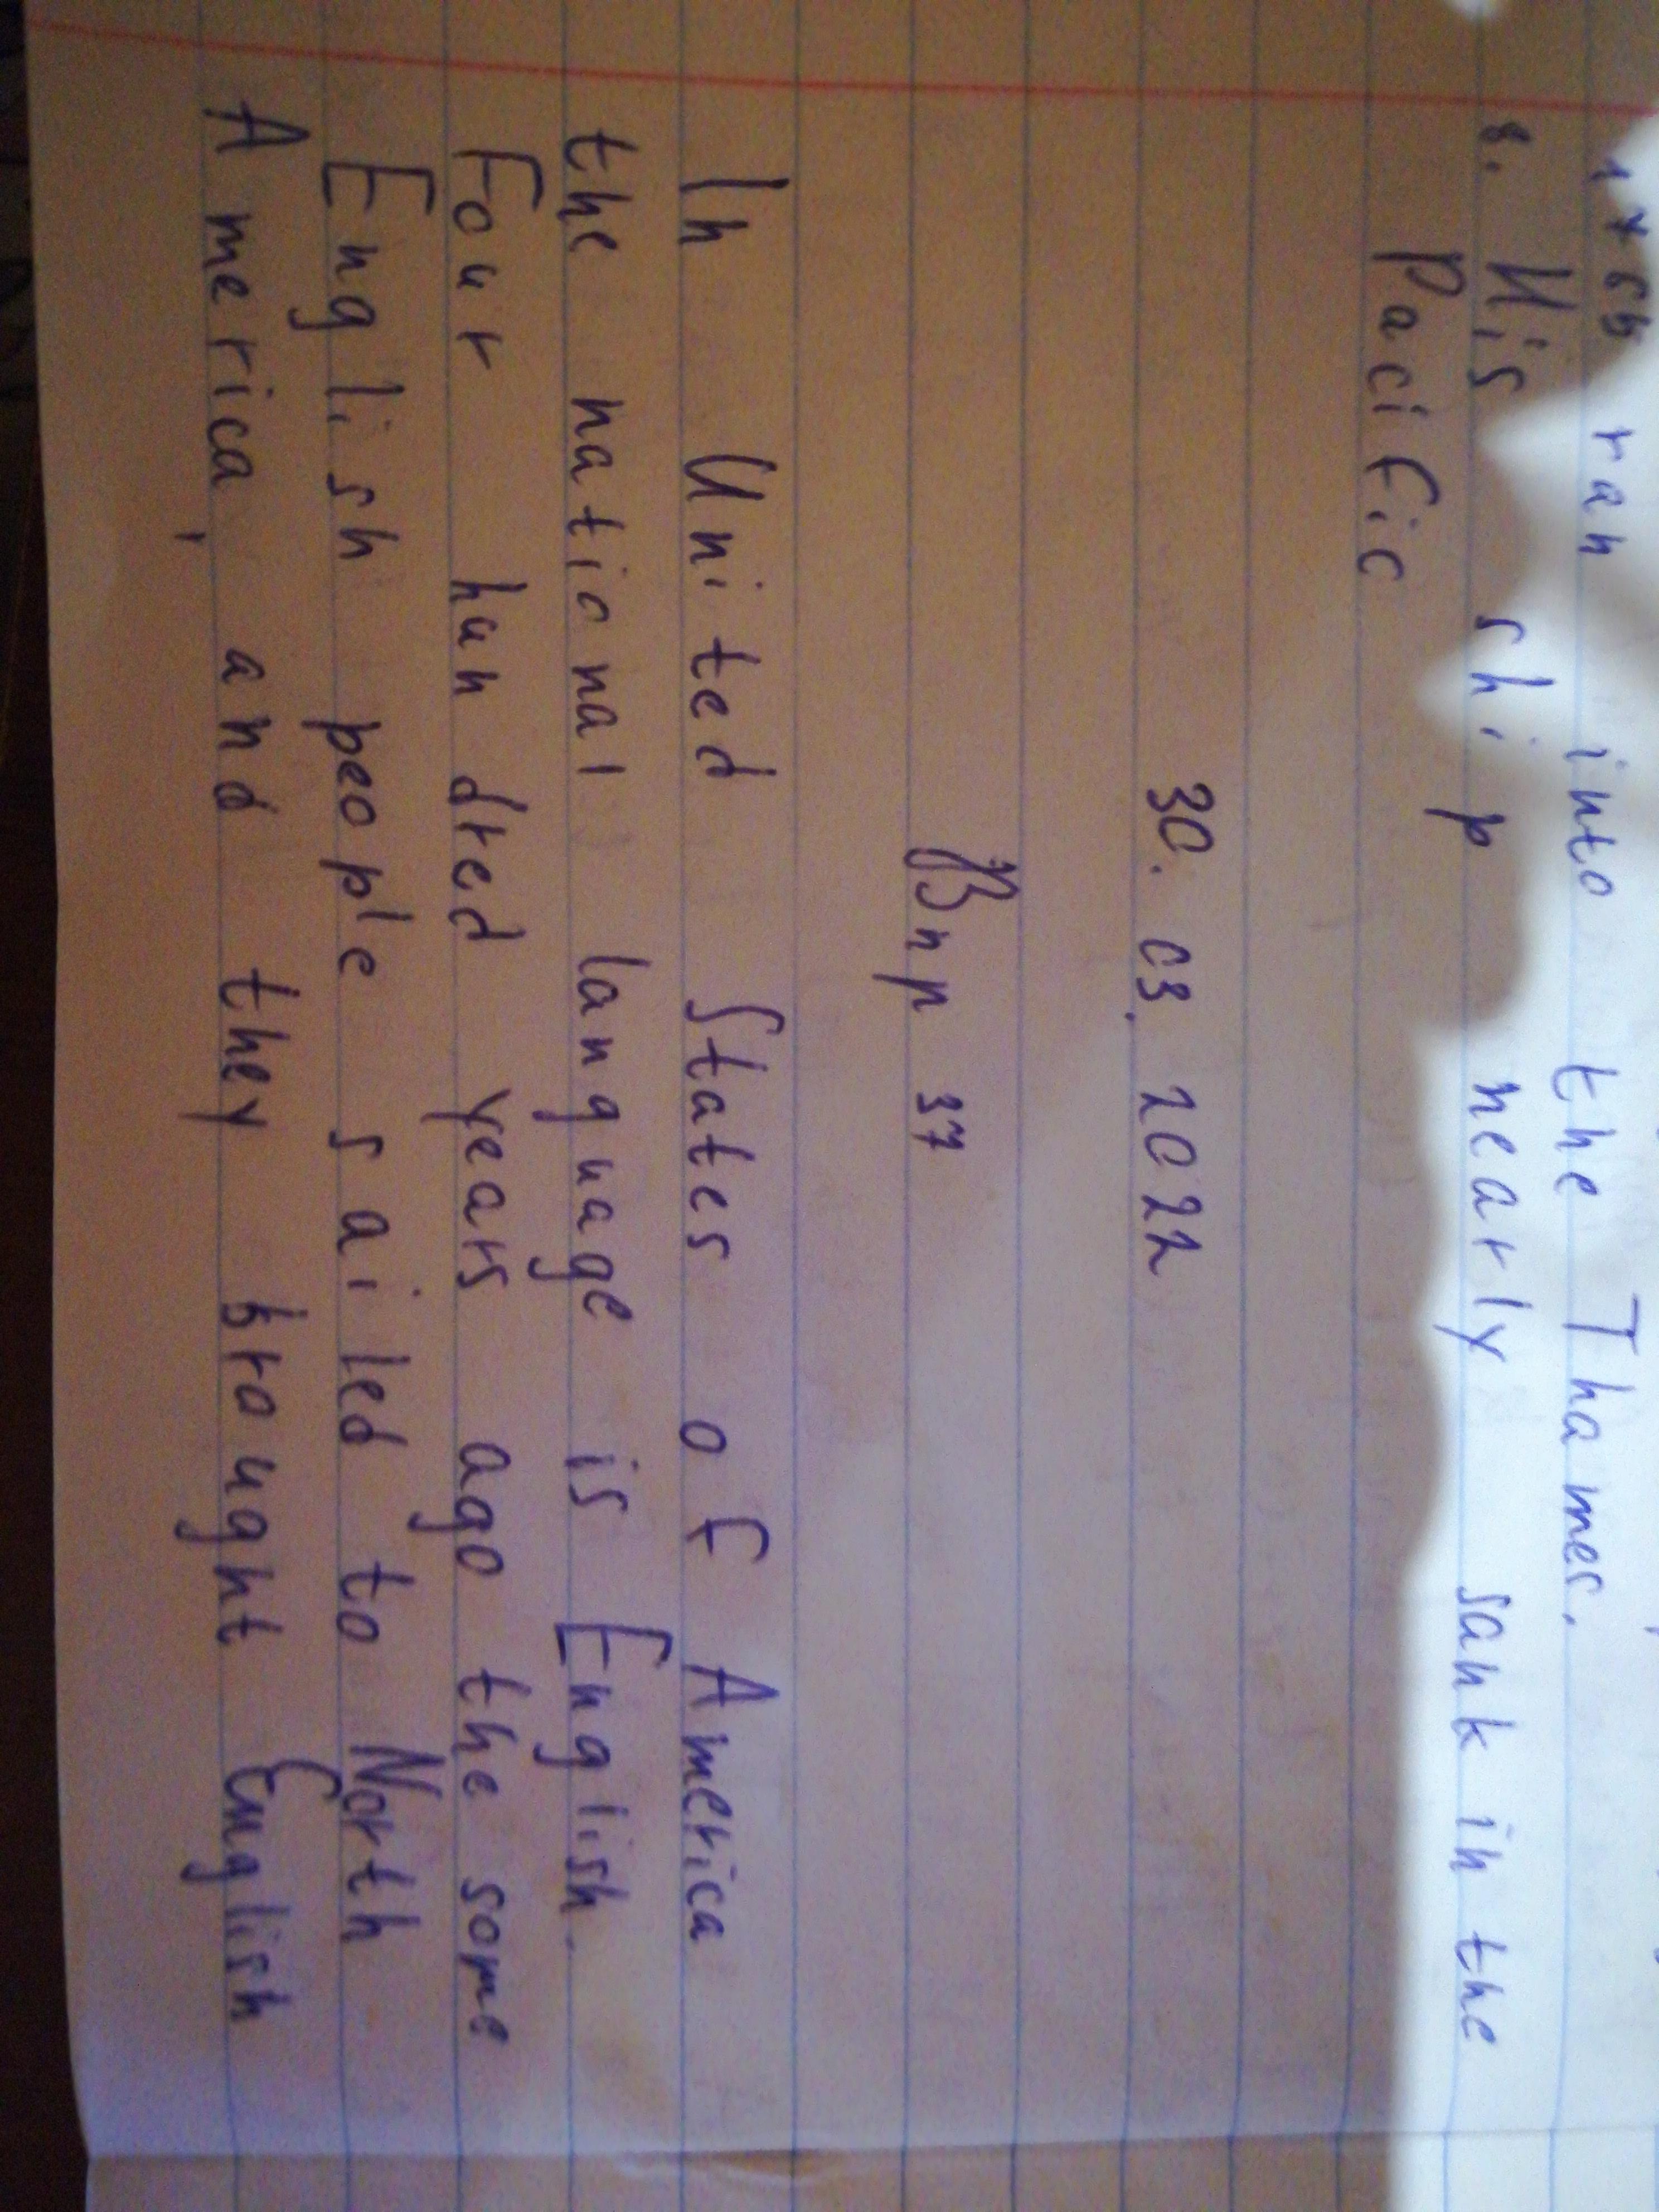 ran into the Thames.
8. His ship nearly sank in the
Pacific
30. 03. 2022
Впр 37
In United States of America
the national language is English.
Four handred years ago the some
English people sailed to North
America, and they brought English